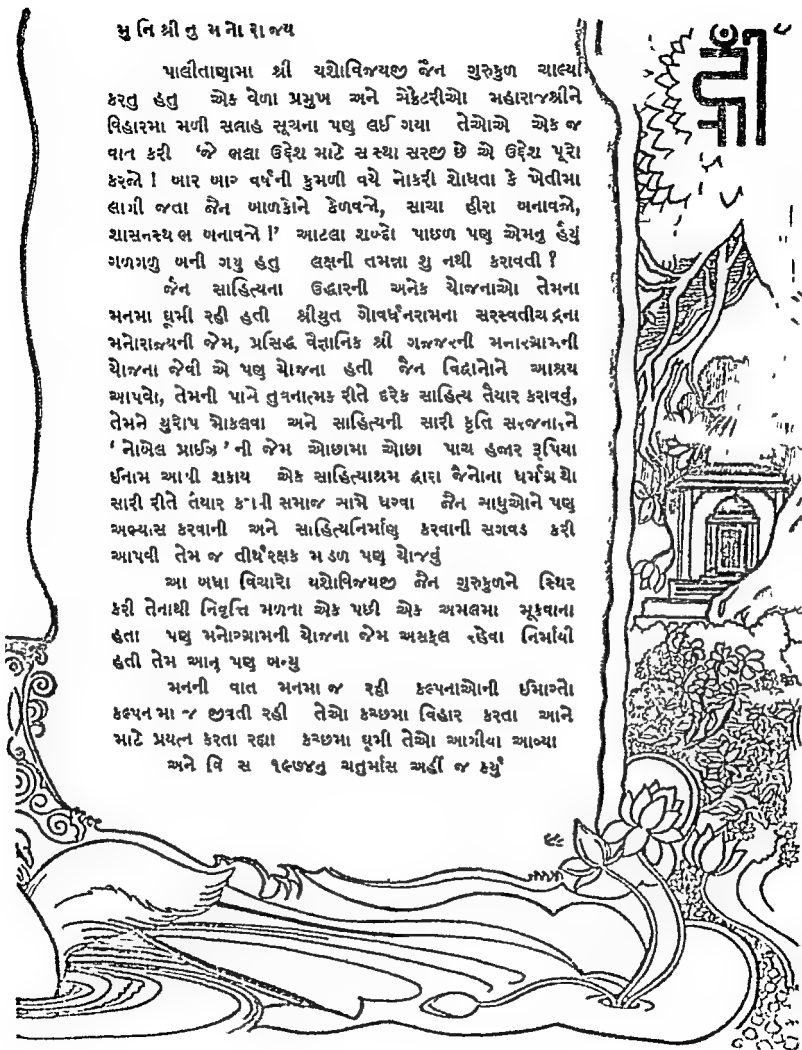 મુનિશ્રીનુ મનોરાજ્ય
પાલીતાણામા શ્રી યશોવિજયજી જૈન ગુરુકુળ ચાલ્યા
કરતુ હતુ એક વેળા પ્રમુખ અને સેક્રેટરીઓ મહારાજશ્રીને
વિહારમા મળી સલાહ સૂચના પણ લઈ ગયા તેઓએ એક જ
વાત કરી 'જે ભલા ઉદ્દેશ માટે સ સ્થા સરજી છે એ ઉદ્દેશ પૂરો
કરજો ! બાર બાર વર્ષની કુમળી વયે નોકરી શોધતા કે ખેતીમા
લાગી જતા જૈન બાળકોને કેળવજો, સાચા હીરા બનાવજો,
શાસનસ્થ ભ બનાવજો !' આટલા શબ્દો પાછળ પણ એમનુ હૈયું
ગળગળુ બની ગયુ હતુ લક્ષની તમન્ના શુ નથી કરાવતી ?
જૈન સાહિત્યના ઉદ્ધારની અનેક યોજનાઓ તેમના
મનમા ઘૂમી રહી હતી શ્રીયુત ગોવર્ધનરામના સરસ્વતીચ દ્રના
મનોરાજ્યની જેમ, પ્રસિદ્ધ વૈજ્ઞાનિક શ્રી ગજ્જરની મનોરગ્રામની
યોજના જેવી એ પણ યોજના હતી જૈન વિદ્વાનોને આશ્રય
આપવો, તેમની પાસે તુલનાત્મક રીતે દરેક સાહિત્ય તૈયાર કરાવવું,
તેમને યુરોપ મોકલવા અને સાહિત્યની સારી કૃતિ સરજનારને
'નોબેલ પ્રાઈઝ'ની જેમ ઓછામા ઓછા પાચ હજાર રૂપિયા
ઈનામ આપી શકાય એક સાહિત્યાશ્રમ દ્વારા જૈનોના ધર્મગ્ર થો
સારી રીતે તૈયાર કરાવી સમાજ સામે ધરવા જૈન સાધુઓને પણ
અભ્યાસ કરવાની અને સાહિત્યનિર્માણ કરવાની સગવડ કરી
આપવી તેમ જ તીર્થરક્ષક મ ડળ પણ યોજવું
આ બધા વિચારો યશોવિજયજી જૈન ગુરુકુળને સ્થિર
કરી તેનાથી નિવૃત્તિ મળતા એક પછી એક અમલમા મૂકવાના
હતા પણ મનોરગ્રામની યોજના જેમ અસફલ રહેવા નિર્માયી
હતી તેમ આનુ પણ બન્યુ
મનની વાત મનમા જ રહી કલ્પનાઓની ઈમારતો
કલ્પનમા જ જીવતી રહી તેઓ કચ્છમા વિહાર કરતા આને
માટે પ્રયત્ન કરતા રહ્યા કચ્છમા ઘૂમી તેઓ આગીયા આવ્યા
અને વિ સ ૧૯૭૪નુ ચતુર્માસ અહીં જ કર્યું
૯૯